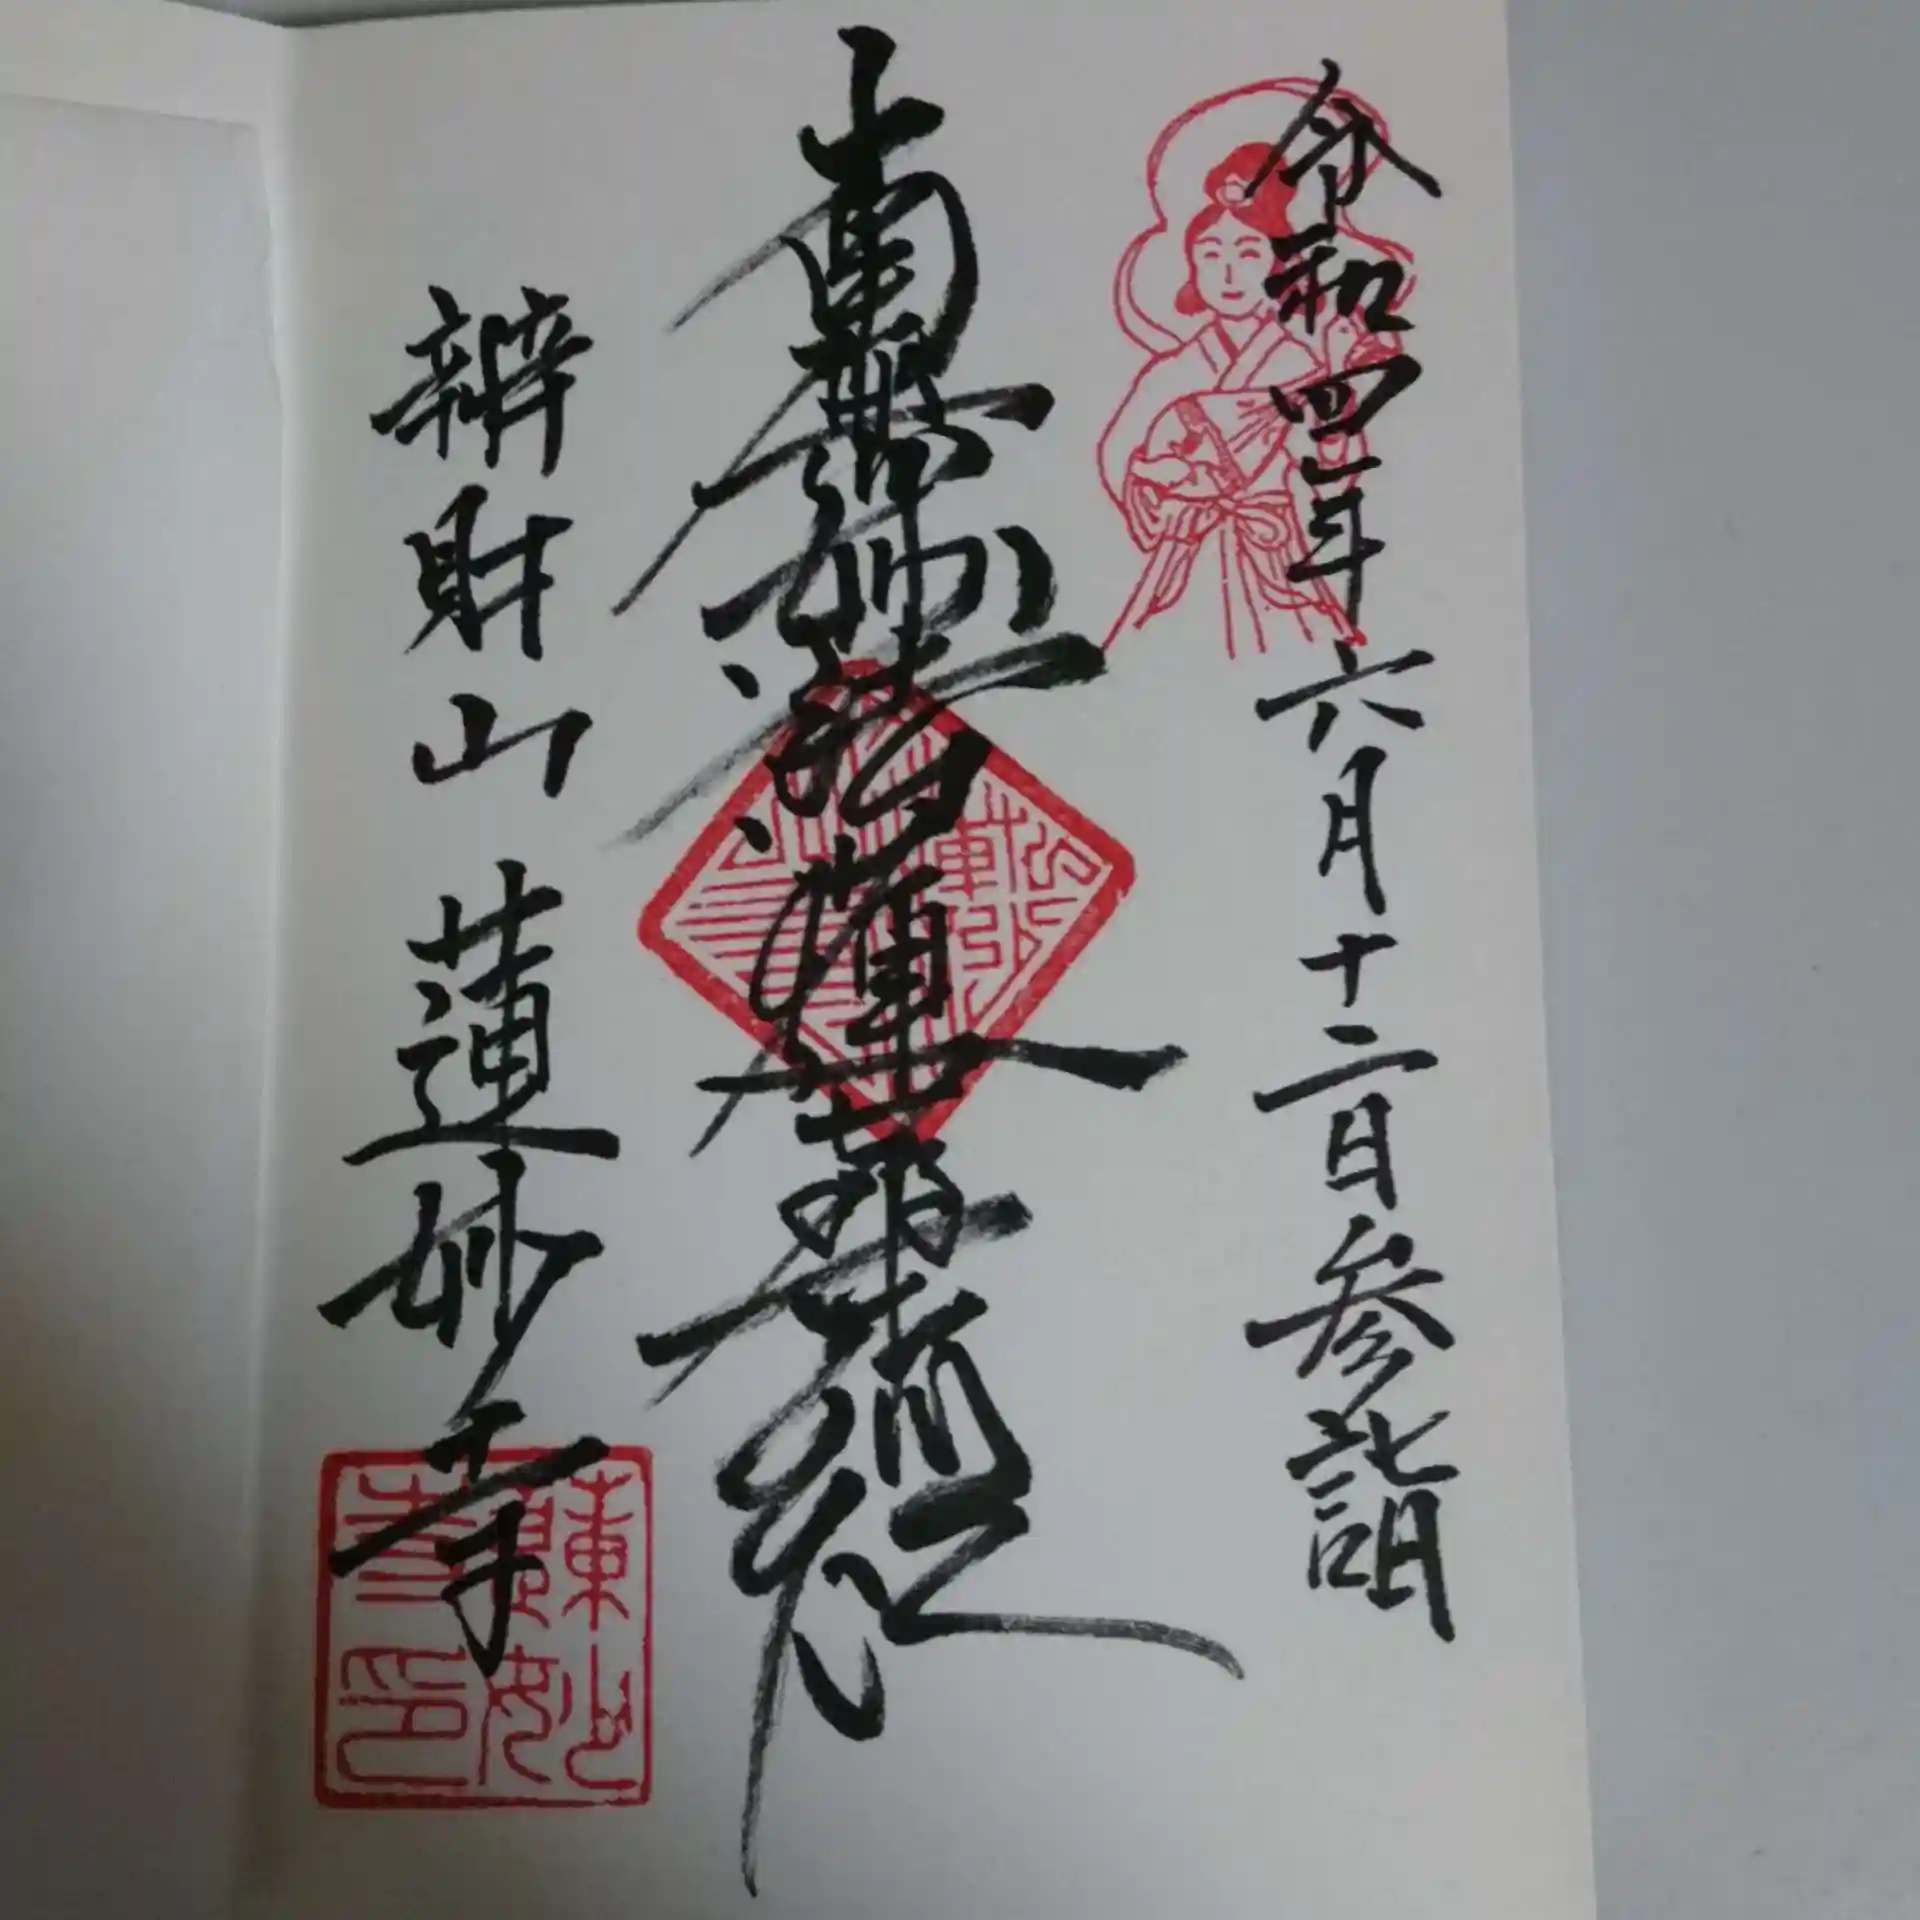 令和四年六月十二日参詣
南無妙法蓮華経
辨財山 蓮妙寺